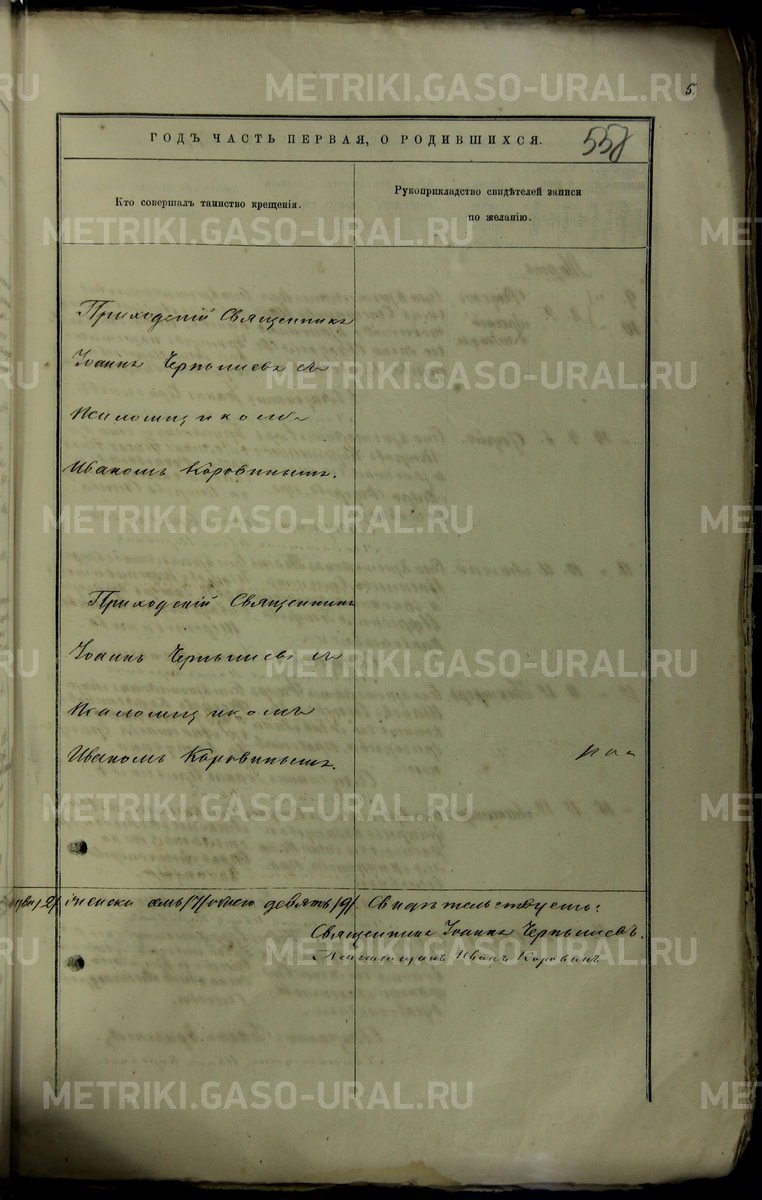 5
558
ГОДЪ ЧАСТЬ ПЕРВАЯ, О РОДИВШИХСЯ.
Кто совершалъ таинство крещенія.
Рукоприкладство свидѣтелей записи
по желанію.
Приходскій Священникъ
Іоаннъ Чернышевъ съ
Псаломщикомъ
Иваномъ Коровинымъ.
Приходскій Священникъ
Іоаннъ Чернышевъ съ
Псаломщикомъ
Иваномъ Коровинымъ.
/2/ женска семь /7/ обоего девять /9/. Свидѣтельствуемъ:
Священникъ Іоаннъ Чернышевъ.
Псаломщикъ Иванъ Коровинъ
METRIKI.GASO-URAL.RU